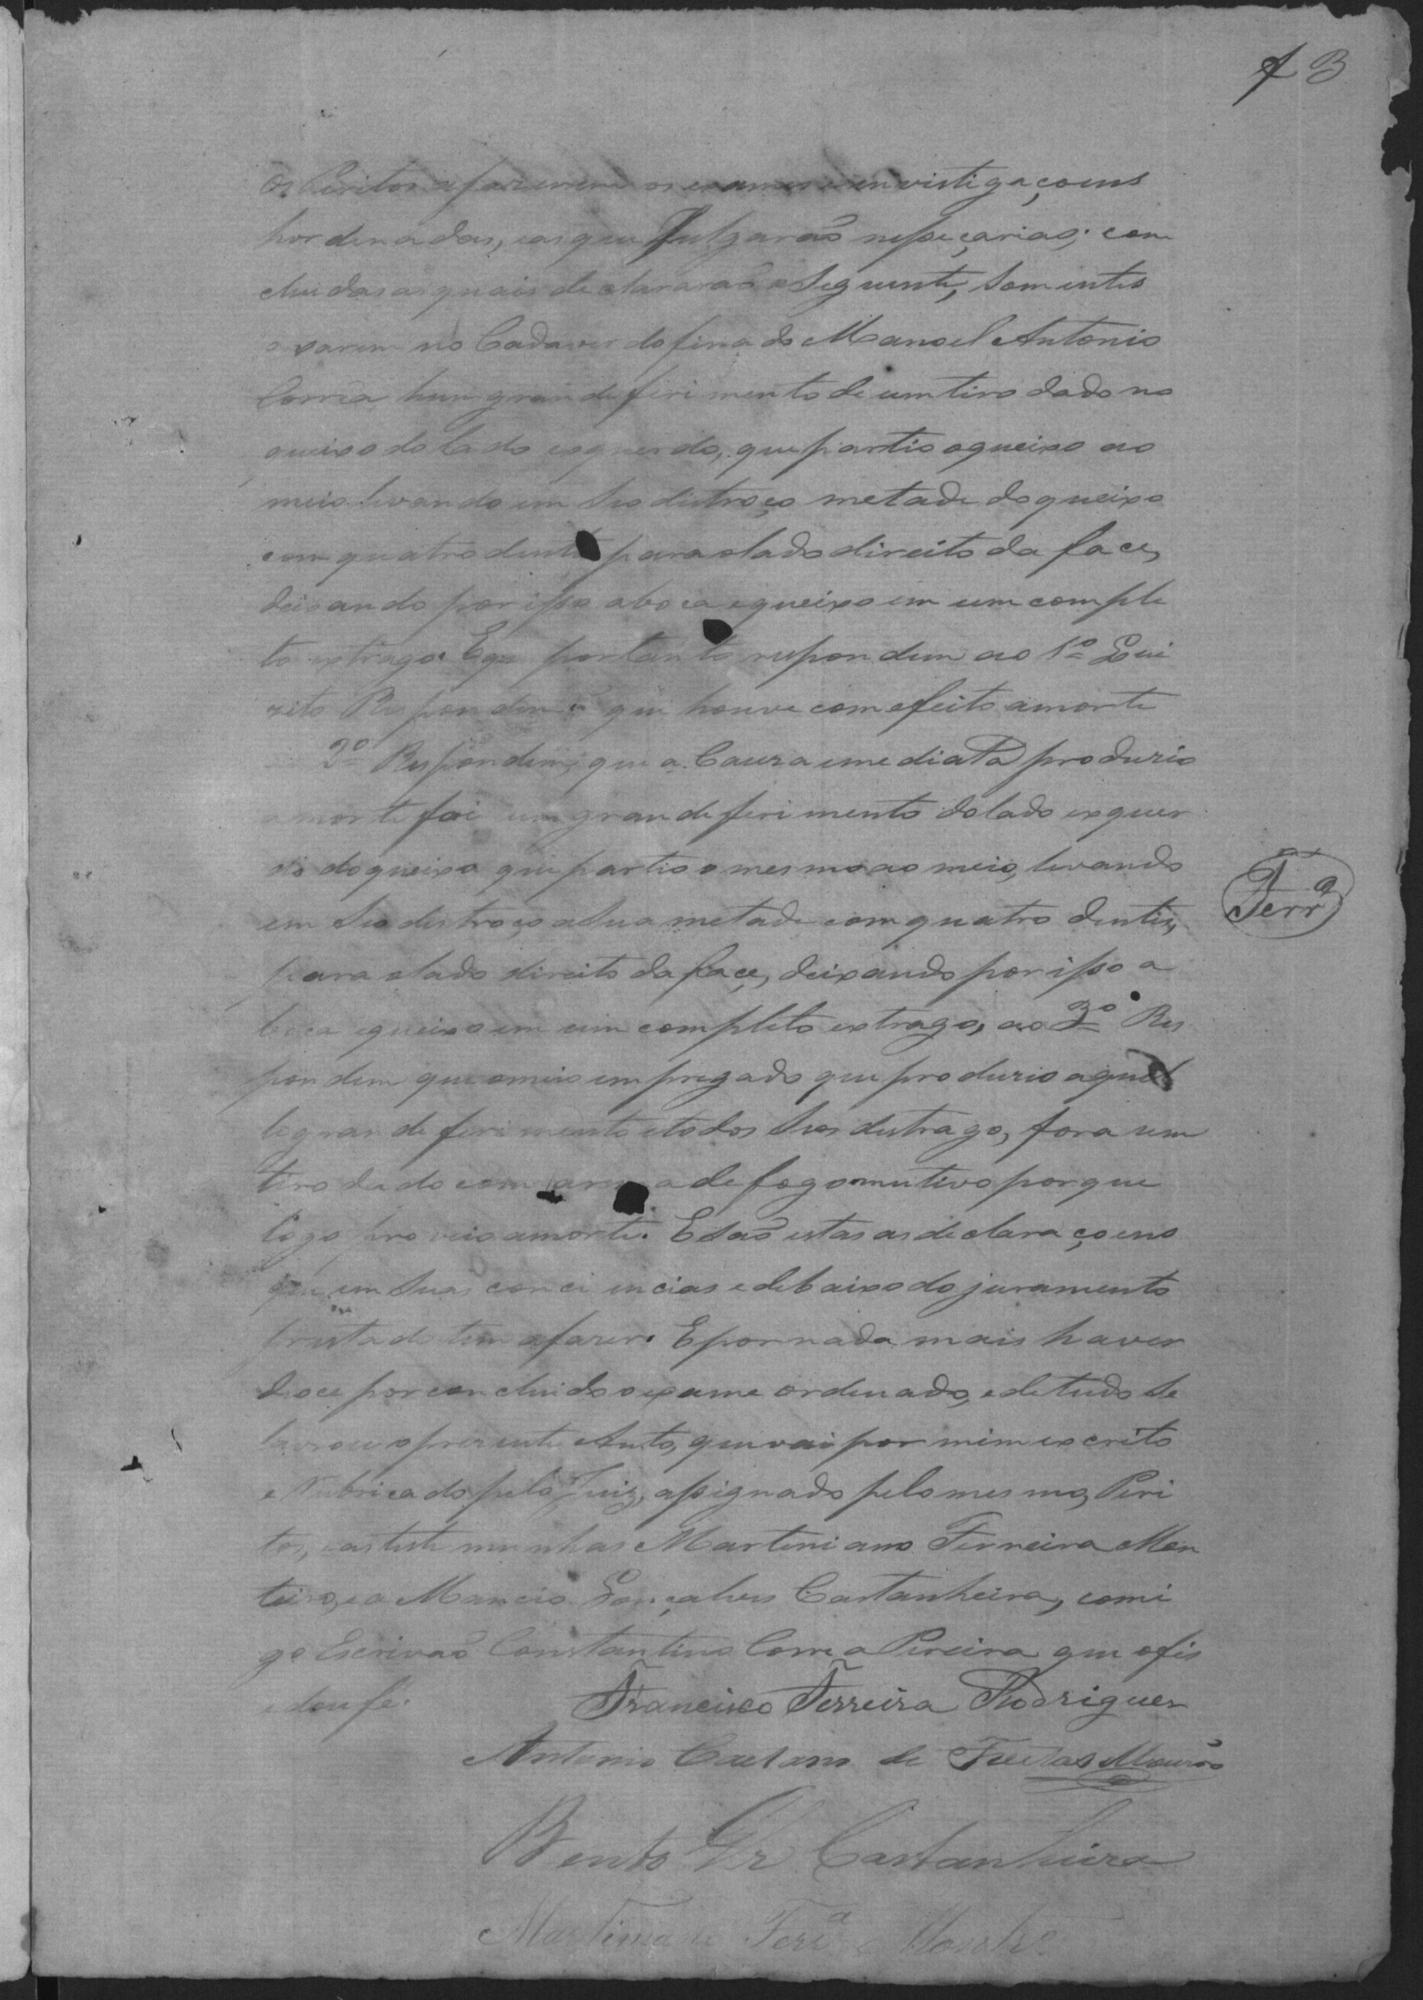 f 3
Os Peritos afazerem os exames e investigaçoens
hordenadas, e as que Julgarão nesseçarias; con
cluidas as quais declararão o seguinte, somentes
axarem no Cadaver do finado Manoel Antonio
Corrêa hum grande ferimento de um tiro dado no
queixo do lado esquerdo, que partio o queixo ao
meio levando em seo distroço metade do queixo
com quatro dentes para o lado direito da face,
deixando por isso a boca e queixo em um comple
to extrago. E que portanto respondem ao 1º Quizito
Respondem que houve com efeito a morte
2º Respondem, que a Cauza emediata produzio
a morte foi um grande ferimento do lado esquer
do do queixo que partio o mesmo ao meio, levando
em seo distroço a sua metade com quatro dentes,
para o lado direito da face, deixando por isso a
boca e queixo em um completo extrago, ao 3º Res
pondem que o meio empregado que produzio aquel
le grande ferimento e todos seos distrago, fora um
tiro dado com arma de fogo mutivo porque
logo proveio a morte. E são estas as declaraçoens
que em suas conciencias e debaixo do juramento
prestado tem afazer. E por nada mais haver
deoce por concluido o exame ordenado, e de tudo se
lavrou o prezente Auto, que vai por mim escrito
e Rubricado pelo Juiz, assignado pelo mesmo, Peri
tos, e as testemunhas Martiniano Ferreira Mon
teiro, e a Mancio Gonçalves Castanheira, comi
go Escrivão Constantino Correa Pereira que o fis
e dou fé.
Francisco Ferreira Rodrigues
Antonio Caetano de Freitas Mourão
Bento Glz Castanheira
Martiniano Ferrª Montrº
Ferrª